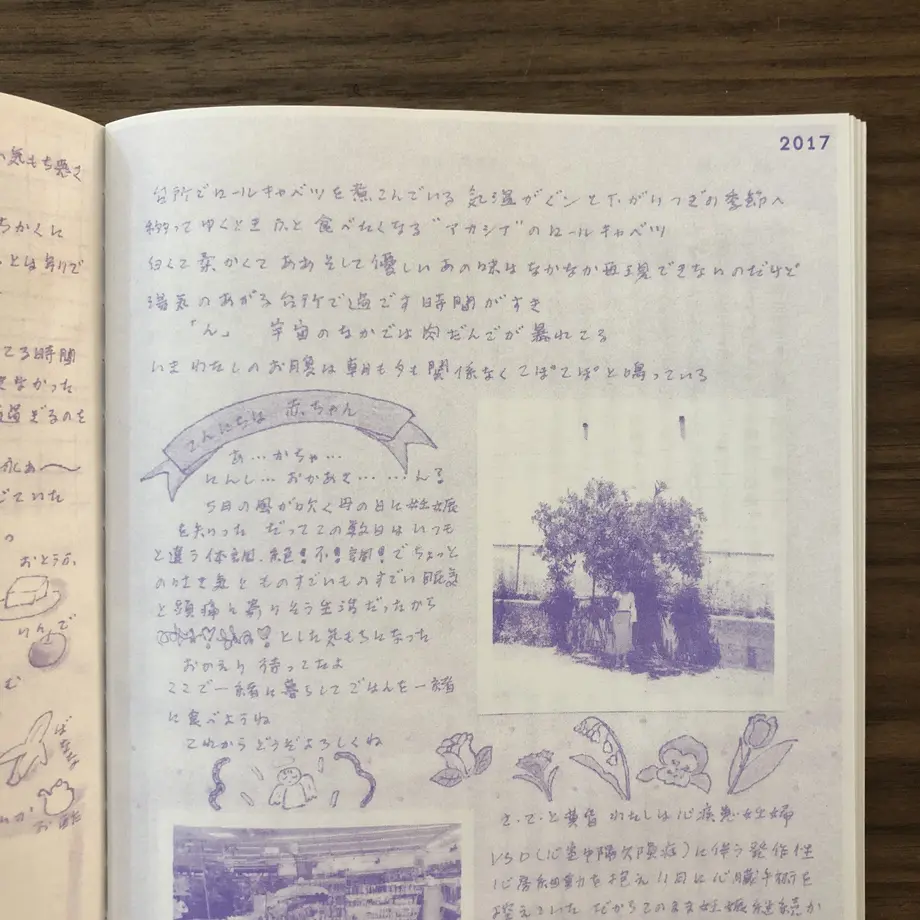 気もち悪さ
ちかくに
とは寄りで
てる時間
なかった
過ぎるのを
ていた
おとうふ
りんご
む
ばなな
2017
台所でロールキャベツを煮こんでいる 気温がグンと下がりつぎの季節へ
移ってゆくとき ふと 食べたくなる"アカシア"のロールキャベツ
白くて柔かくて ああ そして優しい あの味は なかなか再現できないのだけど
湯気のあがる台所で過ごす時間がすき
「ん」 宇宙のなかでは肉だんごが暴れてる
いま わたしのお腹は朝も夕も関係なく てぽ°てぽ°と鳴っている
こんにちは 赤ちゃん
あ…かちゃ…
にんし… おかあさ… …ん!
5月の風が吹く母の日に妊娠
を知った だってこの数日はいつも
と違う体調、絶!不!調!でちょっと
の吐き気と ものすごいものすごい眠気
と頭痛に寄りそう生活だったから
とした気もちになった
おかえり 待ってたよ
ここで一緒に暮らして ごはんを一緒
に食べようね
これから どうぞよろしくね
さ・て・と 黄昏 わたしは心疾患妊婦
VSD(心室中隔欠損症)に伴う発作性
心房細動を抱え11月に心臓手術を
控えていた だからこのまま妊娠継続か